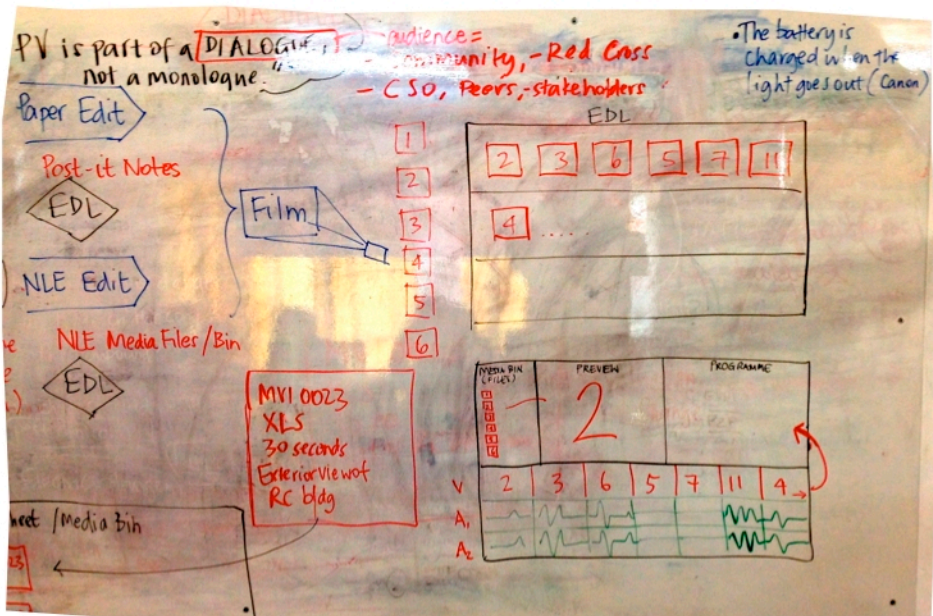 PV is part of a DIALOGUE,
not a monologue."
audience =
- Community, - Red Cross
- CSO, Peers, - stakeholders
• The battery is
charged when the
light goes out (Canon)
Paper Edit
Post-it Notes
EDL
NLE Edit
NLE Media Files / Bin
EDL
Film
1
2
3
4
5
6
EDL
2 3 6 5 7 11
4 .....
MVI 0023
XLS
30 seconds
Exterior view of
RC bldg
/ Media Bin
23
MEDIA BIN
(FILES)
PREVIEW
PROGRAMME
1
2
3
4
5
6
2
V 2 3 6 5 7 11 4
A1
A2